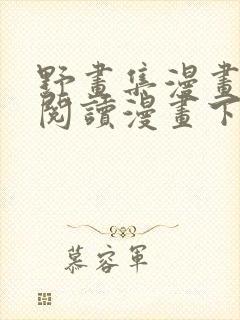 野畫集漫畫
閱讀漫畫下
慕容軍